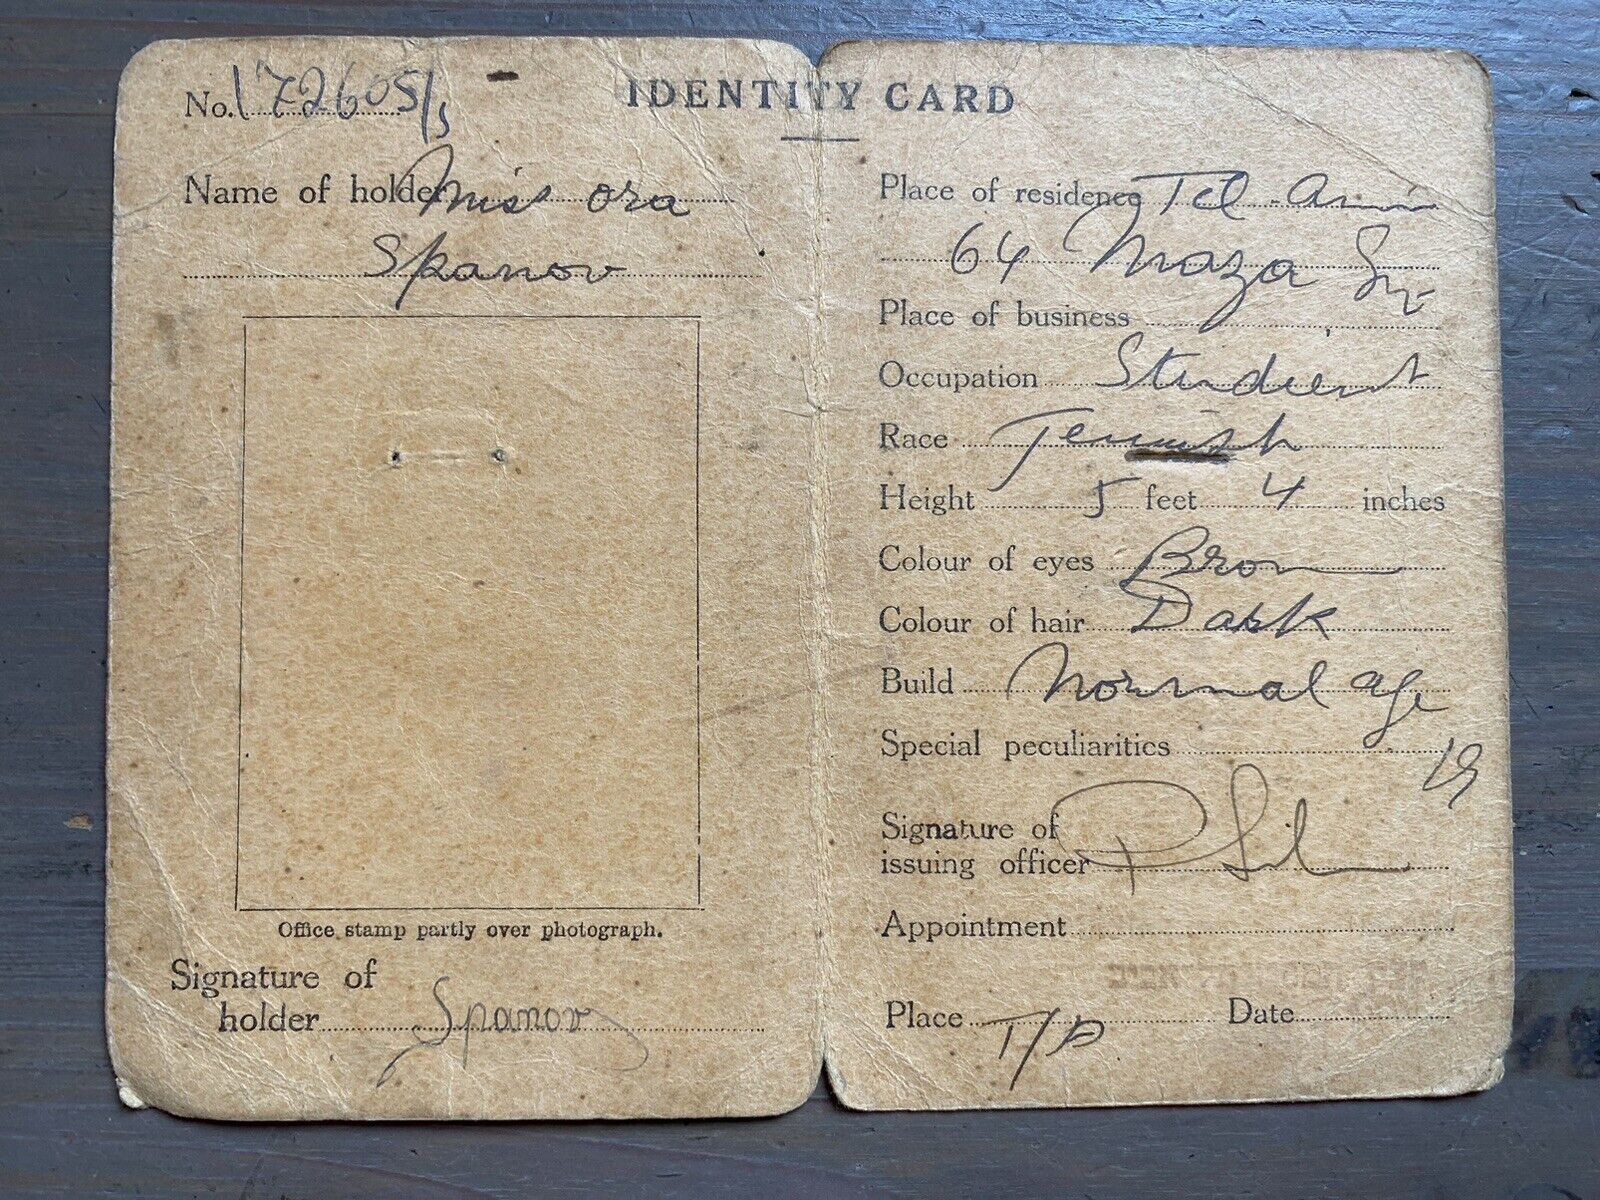 IDENTITY CARD
No. 172605/s
Name of holder Miss Ora
Spanov
Office stamp partly over photograph.
Signature of
holder Spanov
Place of residence Tel-Aviv
64 Maza Str
Place of business
Occupation Student
Race Jewish
Height 5 feet 4 inches
Colour of eyes Bron
Colour of hair Dark
Build Normal age
19
Special peculiarities
Signature of
issuing officer
Appointment
Place T/A Date